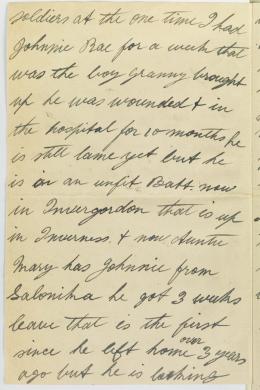 soldiers at the one time I had
Johnnie Rae for a week that
was the boy Granny brought
up he was wounded & in
the hospital for 10 months he
is still lame yet but he
is in an unfit Batt. now
in Invergordon that is up
in Inverness. & now Auntie
Mary has Johnnie from
Salonika he got 3 weeks
leave that is the first
since he left home over 3 years
ago but he is looking